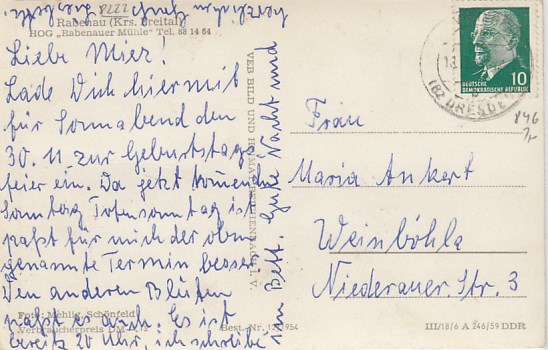 Rabenau (Krs. Freital)
HOG „Rabenauer Mühle" Tel. 88 14 64
Liebe Miez!
Lade Dich hiermit
für Sonnabend den
30. 11. zur Geburtstags
feier ein. Da jetzt kommenden
Sonntag Totensonntag ist
paßt für mich der oben
genannte Termin besser
Den anderen
paßt es auch. Es ist
bereits 20 Uhr, ich schreibe
im Bett. Gute Nacht und
Herzlichen Gruß
VEB BILD UND HEIMAT REICHENBACH i. V.
Foto: Mehlig, Schönfeld
Verbraucherpreis DM
Best. Nr.
954
DEUTSCHE
DEMOKRATISCHE REPUBLIK
10
DRESDEN
846
Frau
Maria Ankert
Weinböhla
Niederauer Str. 3
III/18/6 A 246/59 DDR